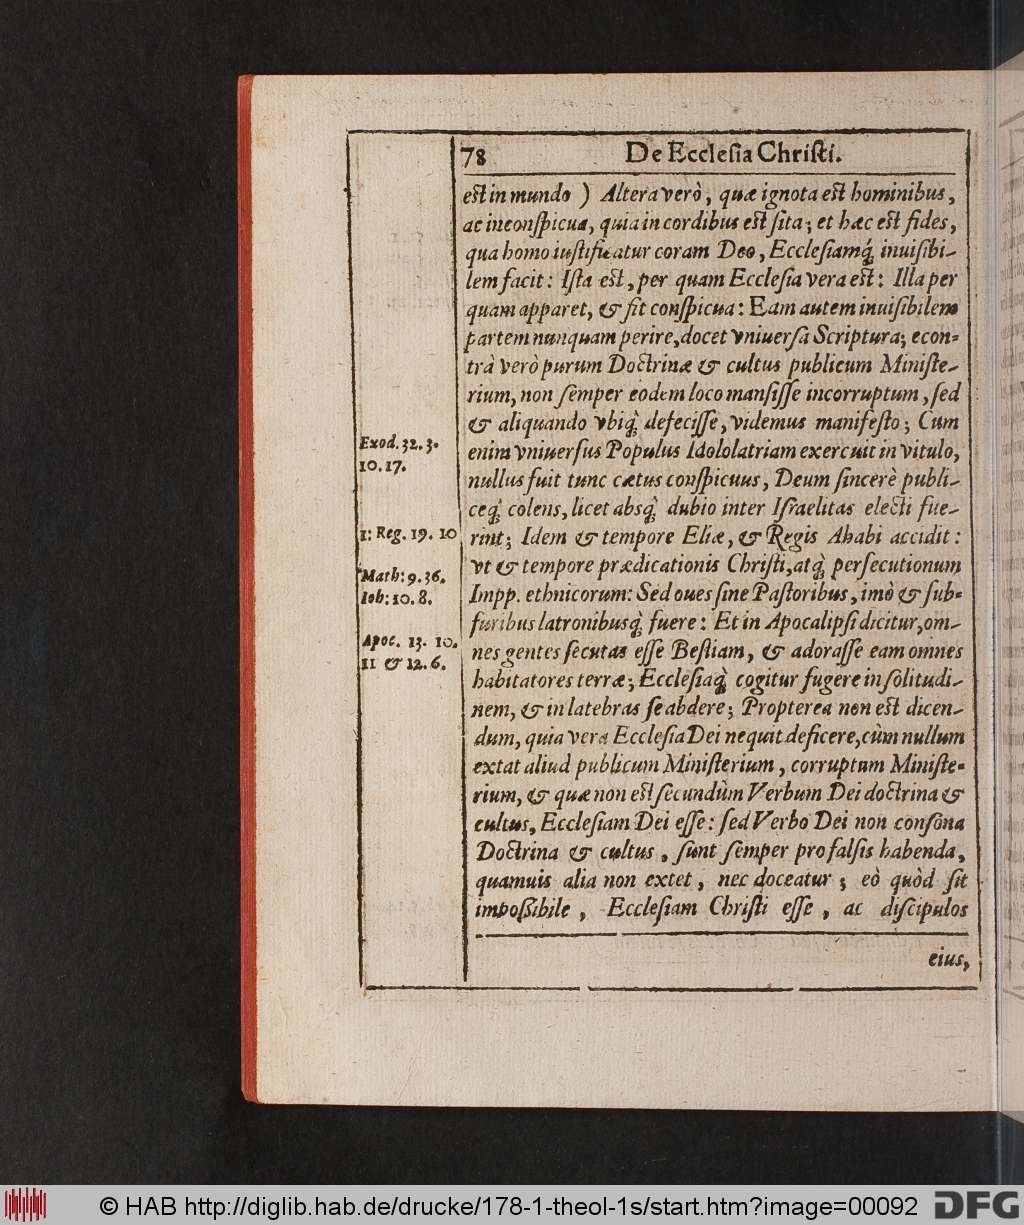 78 De Ecclesia Christi.
est in mundo ) Altera verò, quæ ignota est hominibus,
ac inconspicua, quia in cordibus est sita; et hæc est fides,
qua homo iustificatur coram Deo, Ecclesiamq́; inuisibi-
lem facit: Ista est, per quam Ecclesia vera est: Illa per
quam apparet, & fit conspicua: Eam autem inuisibilem
partem nunquam perire, docet vniuersa Scriptura; econ-
trà verò purum Doctrinæ & cultus publicum Ministe-
rium, non semper eodem loco mansisse incorruptum, sed
& aliquando vbiq; defecisse, videmus manifesto; Cum
Exod. 32. 3.
enim vniuersus Populus Idololatriam exercuit in vitulo,
10. 17.
nullus fuit tunc cætus conspicuus, Deum sincerè publi-
ceq; colens, licet absq; dubio inter Israelitas electi fue-
1: Reg. 19. 10
rint; Idem & tempore Eliæ, & Regis Ahabi accidit:
vt & tempore prædicationis Christi, atq; persecutionum
Math: 9. 36.
Ioh: 10. 8.
Impp. ethnicorum: Sed oues sine Pastoribus, imò & sub-
furibus latronibusq; fuere: Et in Apocalipsi dicitur, om-
Apoc. 13. 10.
11 & 12. 6.
nes gentes secutas esse Bestiam, & adorasse eam omnes
habitatores terræ; Ecclesiaq; cogitur fugere in solitudi-
nem, & in latebras se abdere; Propterea non est dicen-
dum, quia vera Ecclesia Dei nequit deficere, cùm nullum
extat aliud publicum Ministerium, corruptum Ministe-
rium, & quæ non est secundùm Verbum Dei doctrina &
cultus, Ecclesiam Dei esse: sed Verbo Dei non consona
Doctrina & cultus, sunt semper pro falsis habenda,
quamuis alia non extet, nec doceatur; eò quòd sit
impossibile, Ecclesiam Christi esse, ac discipulos
eius,
© HAB http://diglib.hab.de/drucke/178-1-theol-1s/start.htm?image=00092
DFG